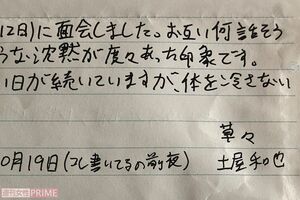 12日)に面会しました。お互い何話そう
うな沈黙が度々あった印象です。
い日が続いていますが、体を冷さない
草々
0月19日(コレ書いてるの前夜)
土屋和也
週刊女性PRIME